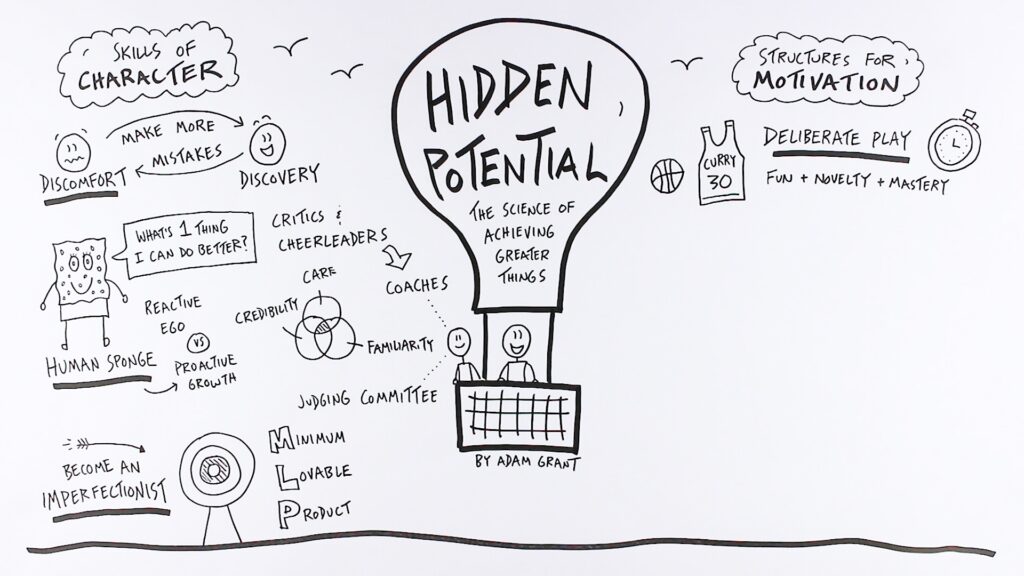 SKILLS OF
CHARACTER
MAKE MORE
MISTAKES
DISCOMFORT
DISCOVERY
WHAT'S 1 THING
I CAN DO BETTER?
CRITICS &
CHEERLEADERS
COACHES
CARE
CREDIBILITY
FAMILIARITY
JUDGING COMMITTEE
REACTIVE
EGO
VS
PROACTIVE
GROWTH
HUMAN SPONGE
BECOME AN
IMPERFECTIONIST
MINIMUM
LOVABLE
PRODUCT
HIDDEN
POTENTIAL
THE SCIENCE OF
ACHIEVING
GREATER
THINGS
BY ADAM GRANT
STRUCTURES FOR
MOTIVATION
CURRY
30
DELIBERATE PLAY
FUN + NOVELTY + MASTERY